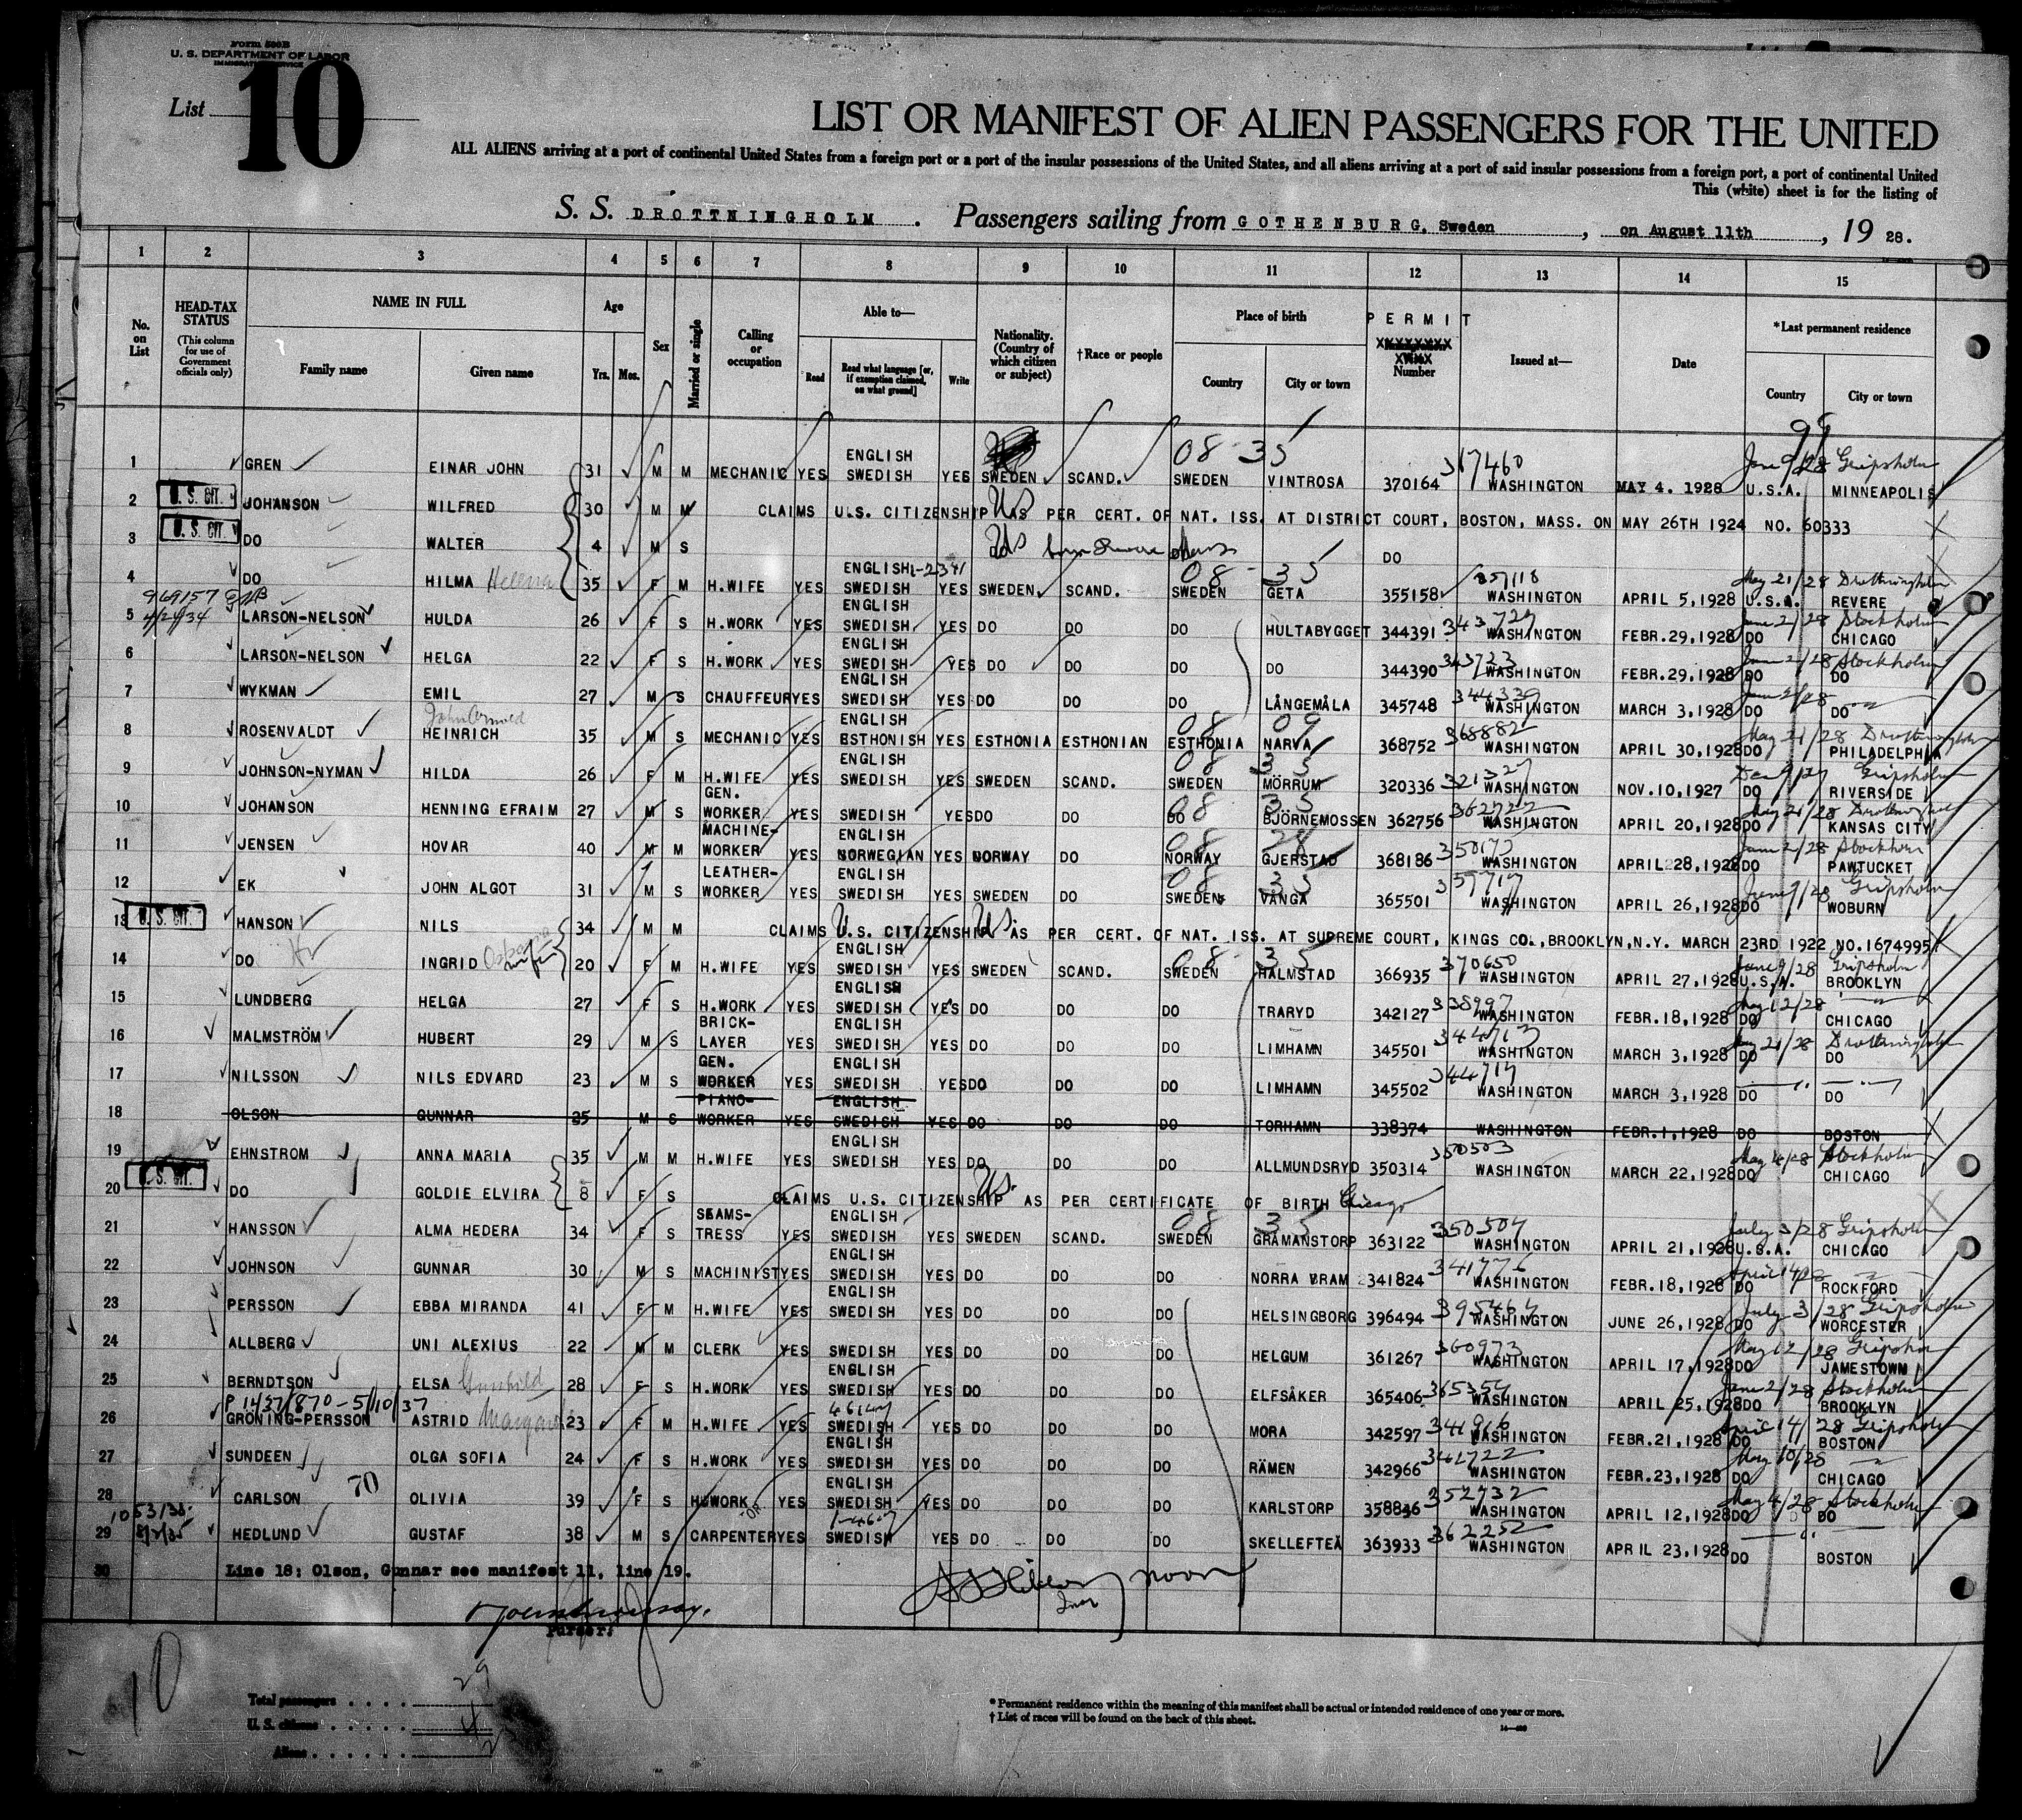 Form 500B
U. S. DEPARTMENT OF LABOR
IMMIGRATION SERVICE
List 10
LIST OR MANIFEST OF ALIEN PASSENGERS FOR THE UNITED
ALL ALIENS arriving at a port of continental United States from a foreign port or a port of the insular possessions of the United States, and all aliens arriving at a port of said insular possessions from a foreign port, a port of continental United
This (white) sheet is for the listing of
S. S. DROTTNINGHOLM . Passengers sailing from GOTHENBURG, Sweden , on August 11th , 19 28.
1 2 3 4 5 6 7 8 9 10 11 12 13 14 15
No. on List
HEAD-TAX STATUS
(This column for use of Government officials only)
NAME IN FULL
Family name Given name
Age
Yrs. Mos.
Sex
Married or single
Calling or occupation
Able to—
Read Read what language [or, if exemption claimed, on what ground] Write
Nationality. (Country of which citizen or subject)
†Race or people
Place of birth
Country City or town
PERMIT
Number
Issued at—
Date
*Last permanent residence
Country City or town
1 GREN EINAR JOHN 31 M M MECHANIC YES ENGLISH SWEDISH YES SWEDEN SCAND. 08 35 SWEDEN VINTROSA 370164 367460 WASHINGTON MAY 4. 1928 June 9/28 Gripsholm U.S.A. MINNEAPOLIS
2 U. S. CIT. JOHANSON WILFRED 30 M M CLAIMS U.S. CITIZENSHIP US AS PER CERT. OF NAT. ISS. AT DISTRICT COURT, BOSTON, MASS. ON MAY 26TH 1924 NO. 60333
3 U. S. CIT. DO WALTER 4 M S US born Revere Mass DO
4 DO HILMA Helena 35 F M H.WIFE YES ENGLISH SWEDISH YES SWEDEN SCAND. 08 35 SWEDEN GETA 355158 357118 WASHINGTON APRIL 5,1928 May 21/28 Drottningholm U.S.A. REVERE
969157
4/24/34
5 LARSON-NELSON HULDA 26 F S H.WORK YES ENGLISH SWEDISH YES DO DO DO HULTABYGGET 344391 343724 WASHINGTON FEBR.29,1928 June 2/28 Stockholm DO CHICAGO
6 LARSON-NELSON HELGA 22 F S H.WORK YES ENGLISH SWEDISH YES DO DO DO DO 344390 343723 WASHINGTON FEBR.29,1928 June 2/28 Stockholm DO DO
7 WYKMAN EMIL 27 M S CHAUFFEUR YES ENGLISH SWEDISH YES DO DO DO LÅNGEMÅLA 345748 344339 WASHINGTON MARCH 3,1928 DO DO
8 ROSENVALDT HEINRICH 35 M S MECHANIC YES ENGLISH ESTHONISH YES ESTHONIA ESTHONIAN 08 09 ESTHONIA NARVA 368752 368882 WASHINGTON APRIL 30,1928 May 21/28 Drottningholm DO PHILADELPHIA
9 JOHNSON-NYMAN HILDA 26 F M H.WIFE YES ENGLISH SWEDISH YES SWEDEN SCAND. 08 35 SWEDEN MÖRRUM 320336 321327 WASHINGTON NOV.10,1927 Dec 9/27 Gripsholm DO RIVERSIDE
10 JOHANSON HENNING EFRAIM 27 M S GEN. WORKER YES SWEDISH YES DO DO 08 35 DO BJÖRNEMOSSEN 362756 362727 WASHINGTON APRIL 20,1928 May 21/28 Drottningholm DO KANSAS CITY
11 JENSEN HOVAR 40 M M MACHINE-WORKER YES ENGLISH NORWEGIAN YES NORWAY DO 08 28 NORWAY GJERSTAD 368186 350173 WASHINGTON APRIL 28,1928 June 2/28 Stockholm DO PAWTUCKET
12 EK JOHN ALGOT 31 M S LEATHER-WORKER YES ENGLISH SWEDISH YES SWEDEN DO 08 35 SWEDEN VÅNGA 365501 357717 WASHINGTON APRIL 26,1928 June 9/28 Gripsholm DO WOBURN
13 U. S. CIT. HANSON NILS 34 M M CLAIMS U.S. CITIZENSHIP US. AS PER CERT. OF NAT. ISS. AT SUPREME COURT, KINGS CO.,BROOKLYN,N.Y. MARCH 23RD 1922 NO.1674995
14 DO INGRID 20 F M H.WIFE YES ENGLISH SWEDISH YES SWEDEN SCAND. 08 35 SWEDEN HALMSTAD 366935 370650 WASHINGTON APRIL 27,1928 June 9/28 Gripsholm U.S.A. BROOKLYN
15 LUNDBERG HELGA 27 F S H.WORK YES ENGLISH SWEDISH YES DO DO DO TRARYD 342127 338997 WASHINGTON FEBR.18,1928 May 12/28 DO CHICAGO
16 MALMSTRÖM HUBERT 29 M S BRICK-LAYER YES ENGLISH SWEDISH YES DO DO DO LIMHAMN 345501 344713 WASHINGTON MARCH 3,1928 May 21/28 Drottningholm DO DO
17 NILSSON NILS EDVARD 23 M S GEN. WORKER YES ENGLISH SWEDISH YES DO DO DO LIMHAMN 345502 344714 WASHINGTON MARCH 3,1928 DO DO
18 OLSON GUNNAR 25 M S PIANO-WORKER YES ENGLISH SWEDISH YES DO DO DO TORHAMN 338374 WASHINGTON FEBR.1,1928 DO BOSTON
19 EHNSTROM ANNA MARIA 35 M M H.WIFE YES ENGLISH SWEDISH YES DO DO DO ALLMUNDSRYD 350314 350503 WASHINGTON MARCH 22,1928 May 4/28 Stockholm DO CHICAGO
20 U. S. CIT. DO GOLDIE ELVIRA 8 F S CLAIMS U.S. CITIZENSHIP US. AS PER CERTIFICATE OF BIRTH Chicago
21 HANSSON ALMA HEDERA 34 F S SEAMS-TRESS YES ENGLISH SWEDISH YES SWEDEN SCAND. 08 35 SWEDEN GRÅMANSTORP 363122 350504 WASHINGTON APRIL 21,1928 July 3/28 Gripsholm U.S.A. CHICAGO
22 JOHNSON GUNNAR 30 M S MACHINIST YES ENGLISH SWEDISH YES DO DO DO NORRA VRAM 341824 341776 WASHINGTON FEBR.18,1928 April 14/28 DO ROCKFORD
23 PERSSON EBBA MIRANDA 41 F M H.WIFE YES ENGLISH SWEDISH YES DO DO DO HELSINGBORG 396494 395464 WASHINGTON JUNE 26,1928 July 3/28 Gripsholm DO WORCESTER
24 ALLBERG UNI ALEXIUS 22 M M CLERK YES SWEDISH YES DO DO DO HELGUM 361267 360973 WASHINGTON APRIL 17,1928 May 12/28 Gripsholm DO JAMESTOWN
25 BERNDTSON ELSA Gunhild 28 F S H.WORK YES ENGLISH SWEDISH YES DO DO DO ELFSÅKER 365406 365354 WASHINGTON APRIL 25,1928 June 2/28 Stockholm DO BROOKLYN
P 1437/870-5/10/37
26 GRÖNING-PERSSON ASTRID 23 F M H.WIFE YES SWEDISH YES DO DO DO MORA 342597 341916 WASHINGTON FEBR.21,1928 April 14/28 Gripsholm DO BOSTON
27 SUNDEEN OLGA SOFIA 24 F S H.WORK YES ENGLISH SWEDISH YES DO DO DO RÄMEN 342966 341722 WASHINGTON FEBR.23,1928 May 10/28 DO CHICAGO
28 CARLSON 70 OLIVIA 39 F S H.WORK YES ENGLISH SWEDISH YES DO DO DO KARLSTORP 358846 352732 WASHINGTON APRIL 12,1928 May 4/28 Stockholm DO DO
29 HEDLUND GUSTAF 38 M S CARPENTER YES SWEDISH YES DO DO DO SKELLEFTEÅ 363933 362252 WASHINGTON APRIL 23,1928 DO BOSTON
30 Line 18: Olson, Gunnar see manifest 11, line 19.
Purser.
10
Total passengers . . . . 29
U. S. citizens . . . . . 4
Aliens . . . . . .
* Permanent residence within the meaning of this manifest shall be actual or intended residence of one year or more.
† List of races will be found on the back of this sheet.